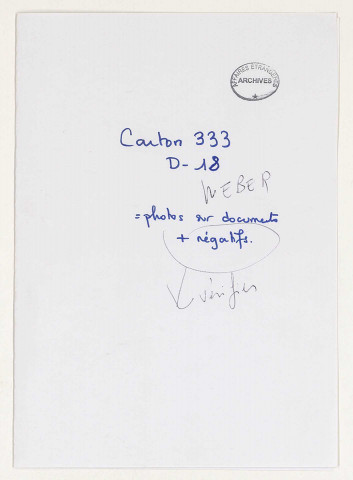 AFFAIRES ETRANGERES
ARCHIVES
Carton 333
D-18
WEBER
= photos sur documents
+ négatifs.
vérifier